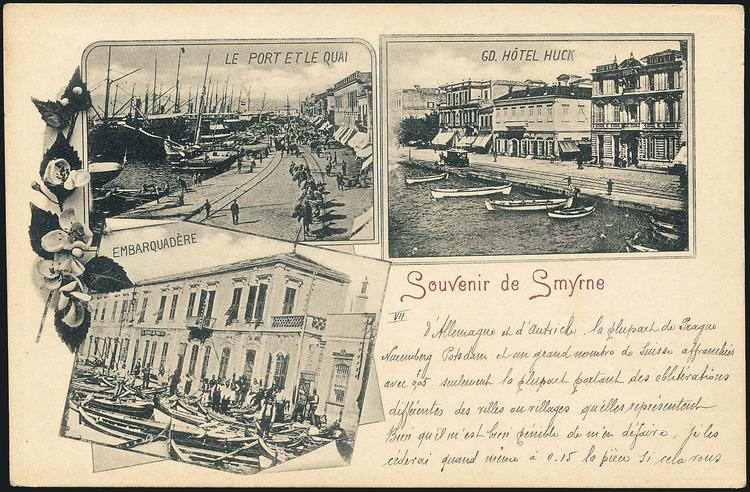 LE PORT ET LE QUAI
GD. HÔTEL HUCK
EMBARQUADÈRE
Souvenir de Smyrne
VII
d'Allemagne et d'Autriche la plupart de Prague
Nuremberg Potsdam et un grand nombre de Suisse affranchies
avec 0,05 seulement la plupart portant des oblitérations
différentes des villes ou villages qu'elles représentent
Bien qu'il m'est bien pénible de m'en défaire, je les
céderai quand même à 0.15 la pièce si cela vous